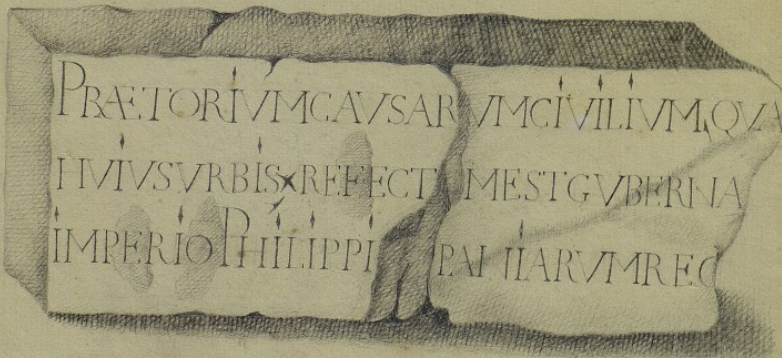 PRÆTORIVM CAVSARVM CIVILIVM, QVA
HVIVS VRBIS REFECT MEST GVBERNA
IMPERIO PHILIPPI REG